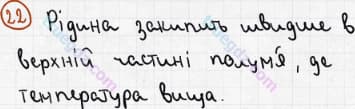 22 Рідина закипить швидше в
верхній частині полум'я, де
температура вища.